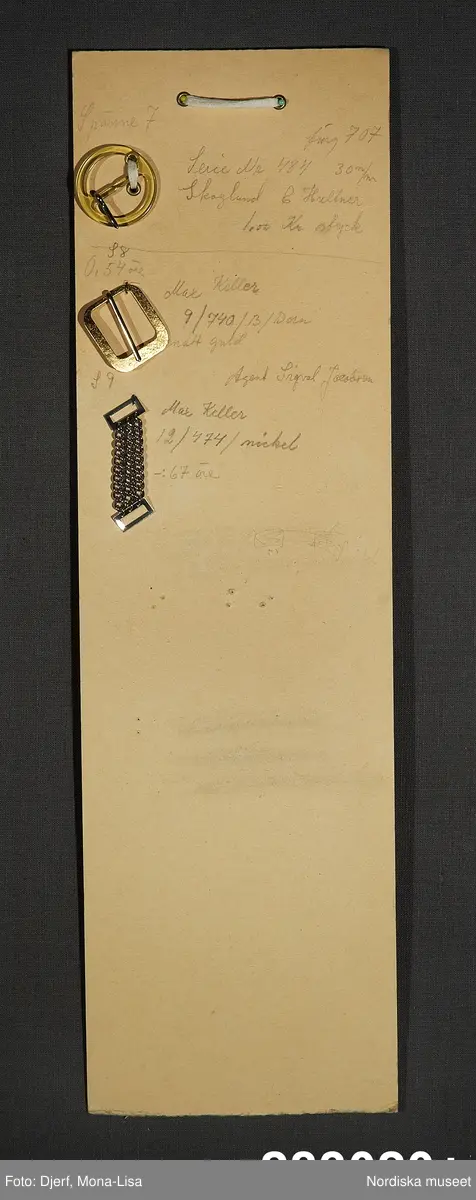 Spänne 7
färg 707
Serie Nr 484 30 m/m
Skoglund &
1,00 Kr styck
S8
0,54 öre
Max Keller
9/740/B/Dorn
matt guld
S 9
Agent Sigval
Max Keller
12/474/nickel
-:67 öre
Foto: Djerf, Mona-Lisa
Nordiska museet